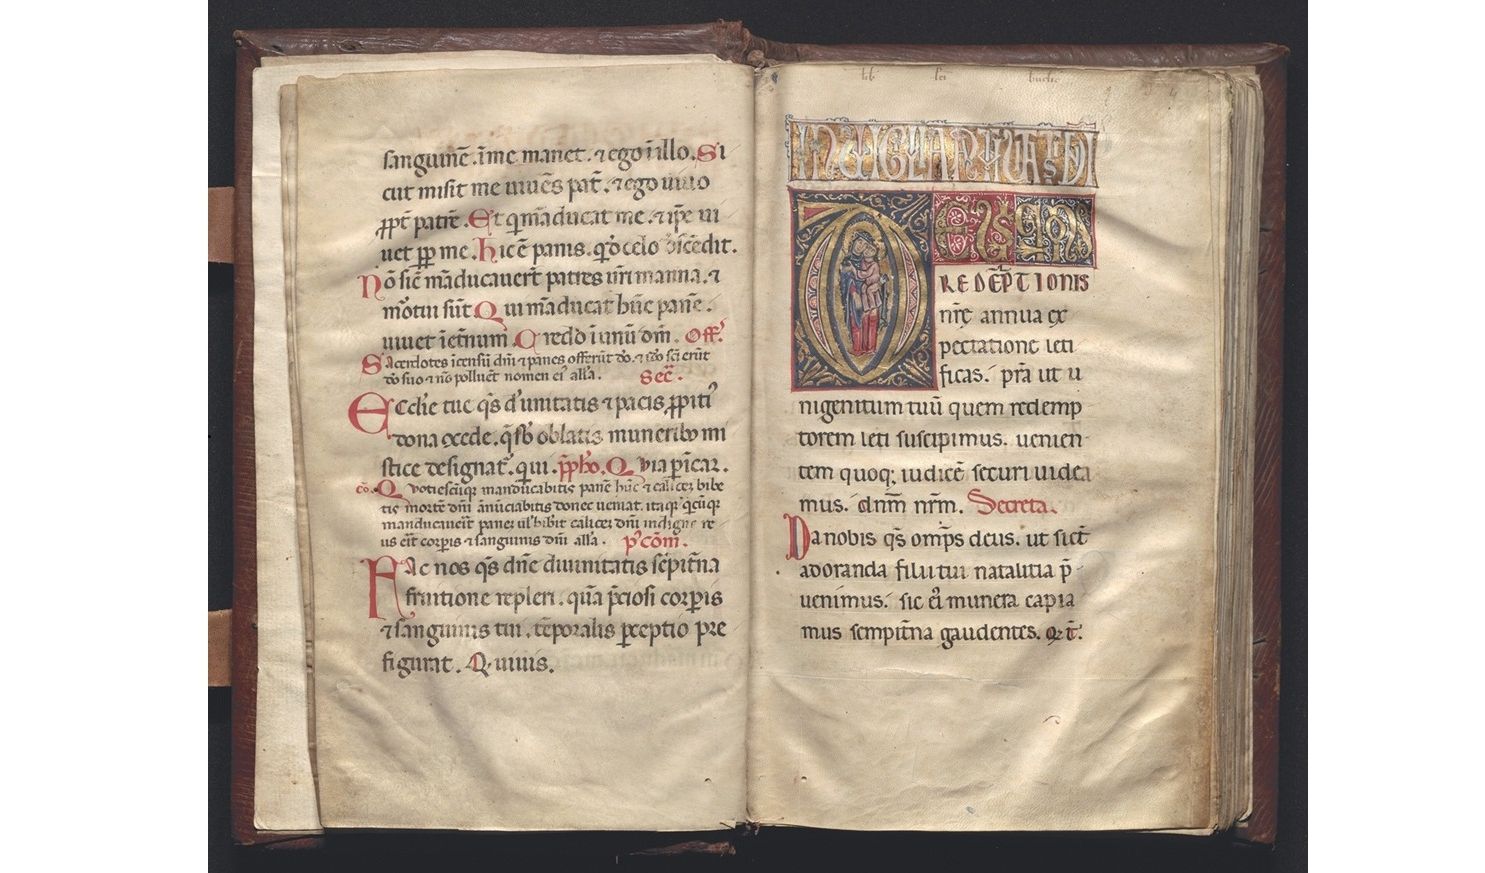 sanguinē. ī me manet. ⁊ ego ī illo. Si
cut misit me uiuēs pat̄. ⁊ ego uiuo
ꝓpt̄ patrē. Et q̄ māducat me. ⁊ ip̄e ui
uet ꝓp me. hic ē panis. q̄ o celo
Nō sic̄ māducauer̄t patres ur̄i manna. ⁊
mortui sūt Qui māducat hūc panē.
uiuet ī et̄num. Credo ī unū dm̄. Off̄.
Sacerdotes īcensū dn̄i ⁊ panes offerūt dō. ⁊ iō sc̄i erūt
dō suo ⁊ nō polluēt nomen ei' all'a. Sec̄.
Eccl̄ie tue q̄s d̄ unitatis ⁊ pacis ꝓpiti'
dona ↄcede. q̄ sb̄ oblatis muneribȝ mi
stice designāt. qui. Quia p̄ īcar.
cō. Quotiescūq; manducabitis panē hūc ⁊ calicez bibe
tis mortē dn̄i ānūciabitis donec ueniat. itaq; q̄cūq;
manducauer̄it panez ul' biberit calicez dn̄i indigne re
us er̄it corp̄is ⁊ sanguinis dn̄i all'a. p' cōm̄.
Fac nos q̄s dn̄e diuinitatis sēpit̄na
fruitione repleri. quā p̄ciosi corp̄is
⁊ sanguinis tui. tēporalis ꝑceptio pre
figurat. Q' uiuis.
lib sci
IN UIGL'A NATIUITATIS DN̄I
DEUS QUI NOS
REDĒPTIONIS
nr̄ę annua ex
pectatione leti
ficas. pr̄a ut u
nigenitum tuū quem redemp
torem leti suscipimus. uenien
tem quoq; iudicē securi uidea
mus. dnm̄ nr̄m. Secreta.
Da nobis q̄s omp̄s deus. ut sict̄
adoranda filii tui natalitia p̄
uenimus. sic ei' munera capia
mus sempit̄na gaudentes. Q' t̄.